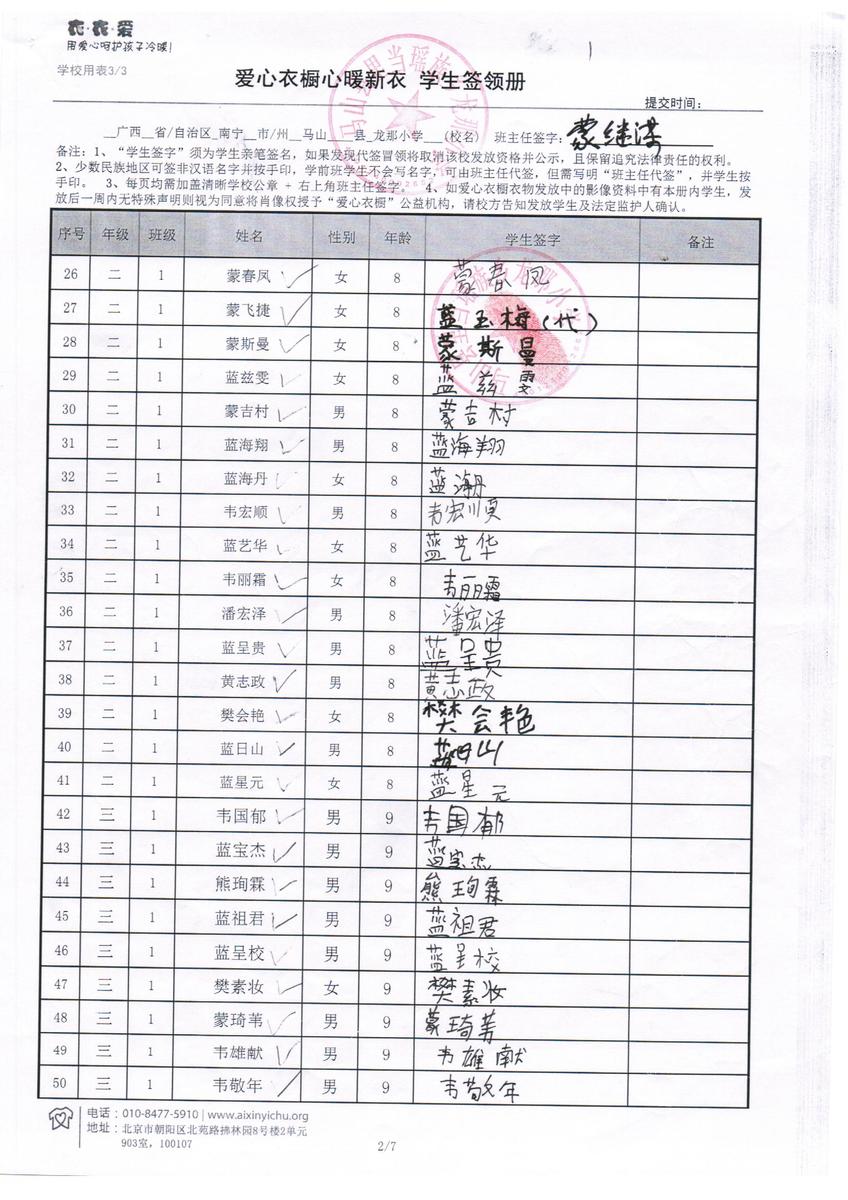 衣·衣·爱
用爱心呵护孩子冷暖!
学校用表3/3
爱心衣橱心暖新衣 学生签领册
提交时间:
__广西__省/自治区_南宁__市/州__马山____县_龙那小学___(校名) 班主任签字: 蒙继谋
备注: 1、“学生签字”须为学生亲笔签名, 如果发现代签冒领将取消该校发放资格并公示, 且保留追究法律责任的权利。
2、少数民族地区可签非汉语名字并按手印, 学前班学生不会写名字, 可由班主任代签, 但需写明“班主任代签”, 并学生按
手印。 3、每页均需加盖清晰学校公章 + 右上角班主任签字。 4、如爱心衣橱衣物发放中的影像资料中有本册内学生, 发
放后一周内无特殊声明则视为同意将肖像权授予“爱心衣橱”公益机构, 请校方告知发放学生及法定监护人确认。
序号 年级 班级 姓名 性别 年龄 学生签字 备注
26 二 1 蒙春凤 女 8 蒙春凤
27 二 1 蒙飞捷 女 8 蓝玉梅(代)
28 二 1 蒙斯曼 女 8 蒙斯曼
29 二 1 蓝兹雯 女 8 蓝兹雯
30 二 1 蒙吉村 男 8 蒙吉村
31 二 1 蓝海翔 男 8 蓝海翔
32 二 1 蓝海丹 女 8 蓝海丹
33 二 1 韦宏顺 男 8 韦宏顺
34 二 1 蓝艺华 女 8 蓝艺华
35 二 1 韦丽霜 女 8 韦丽霜
36 二 1 潘宏泽 男 8 潘宏泽
37 二 1 蓝呈贵 男 8 蓝呈贵
38 二 1 黄志政 男 8 黄志政
39 二 1 樊会艳 女 8 樊会艳
40 二 1 蓝日山 男 8 蓝日山
41 二 1 蓝星元 女 8 蓝星元
42 三 1 韦国郁 男 9 韦国郁
43 三 1 蓝宝杰 男 9 蓝宝杰
44 三 1 熊珣霖 男 9 熊珣霖
45 三 1 蓝祖君 男 9 蓝祖君
46 三 1 蓝呈校 男 9 蓝呈校
47 三 1 樊素妆 女 9 樊素妆
48 三 1 蒙琦苇 男 9 蒙琦苇
49 三 1 韦雄献 男 9 韦雄献
50 三 1 韦敬年 男 9 韦敬年
电话: 010-8477-5910 | www.aixinyichu.org
地址: 北京市朝阳区北苑路拂林园8号楼2单元
903室, 100107
2/7